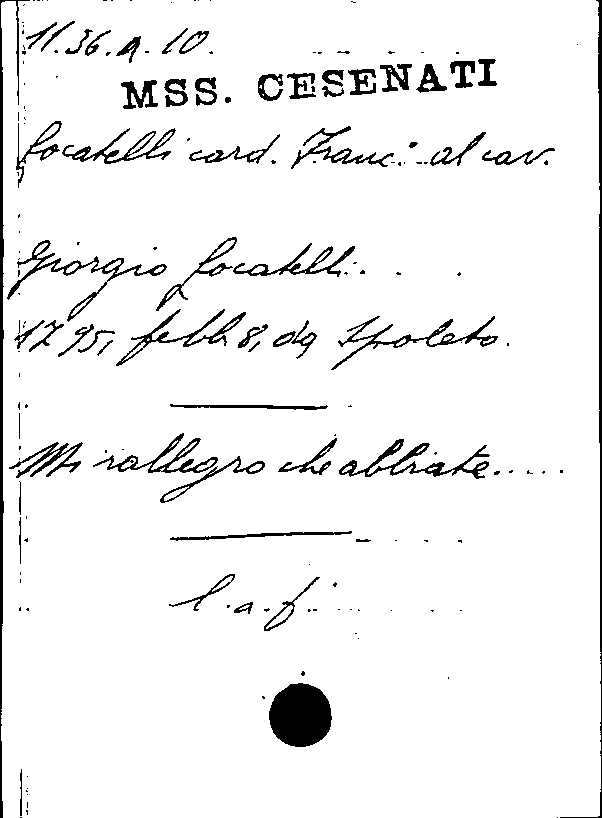 11.36.A.10.
MSS. CESENATI
Locatelli card. Franc: al cav.
Giorgio Locatelli.
1795, febb. 8, da Spoleto.
Mi rallegro che abbiate.....
l. a. f.